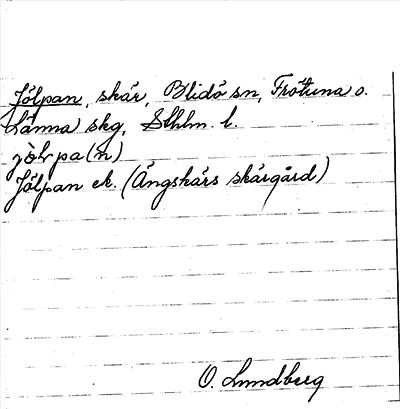 Jölpan, skär, Blidö sn, Frötuna o.
Länna skg, Sthlm. l.
jölpa(n)
Jölpan ek. (Ängskärs skärgård)
O. Lundberg